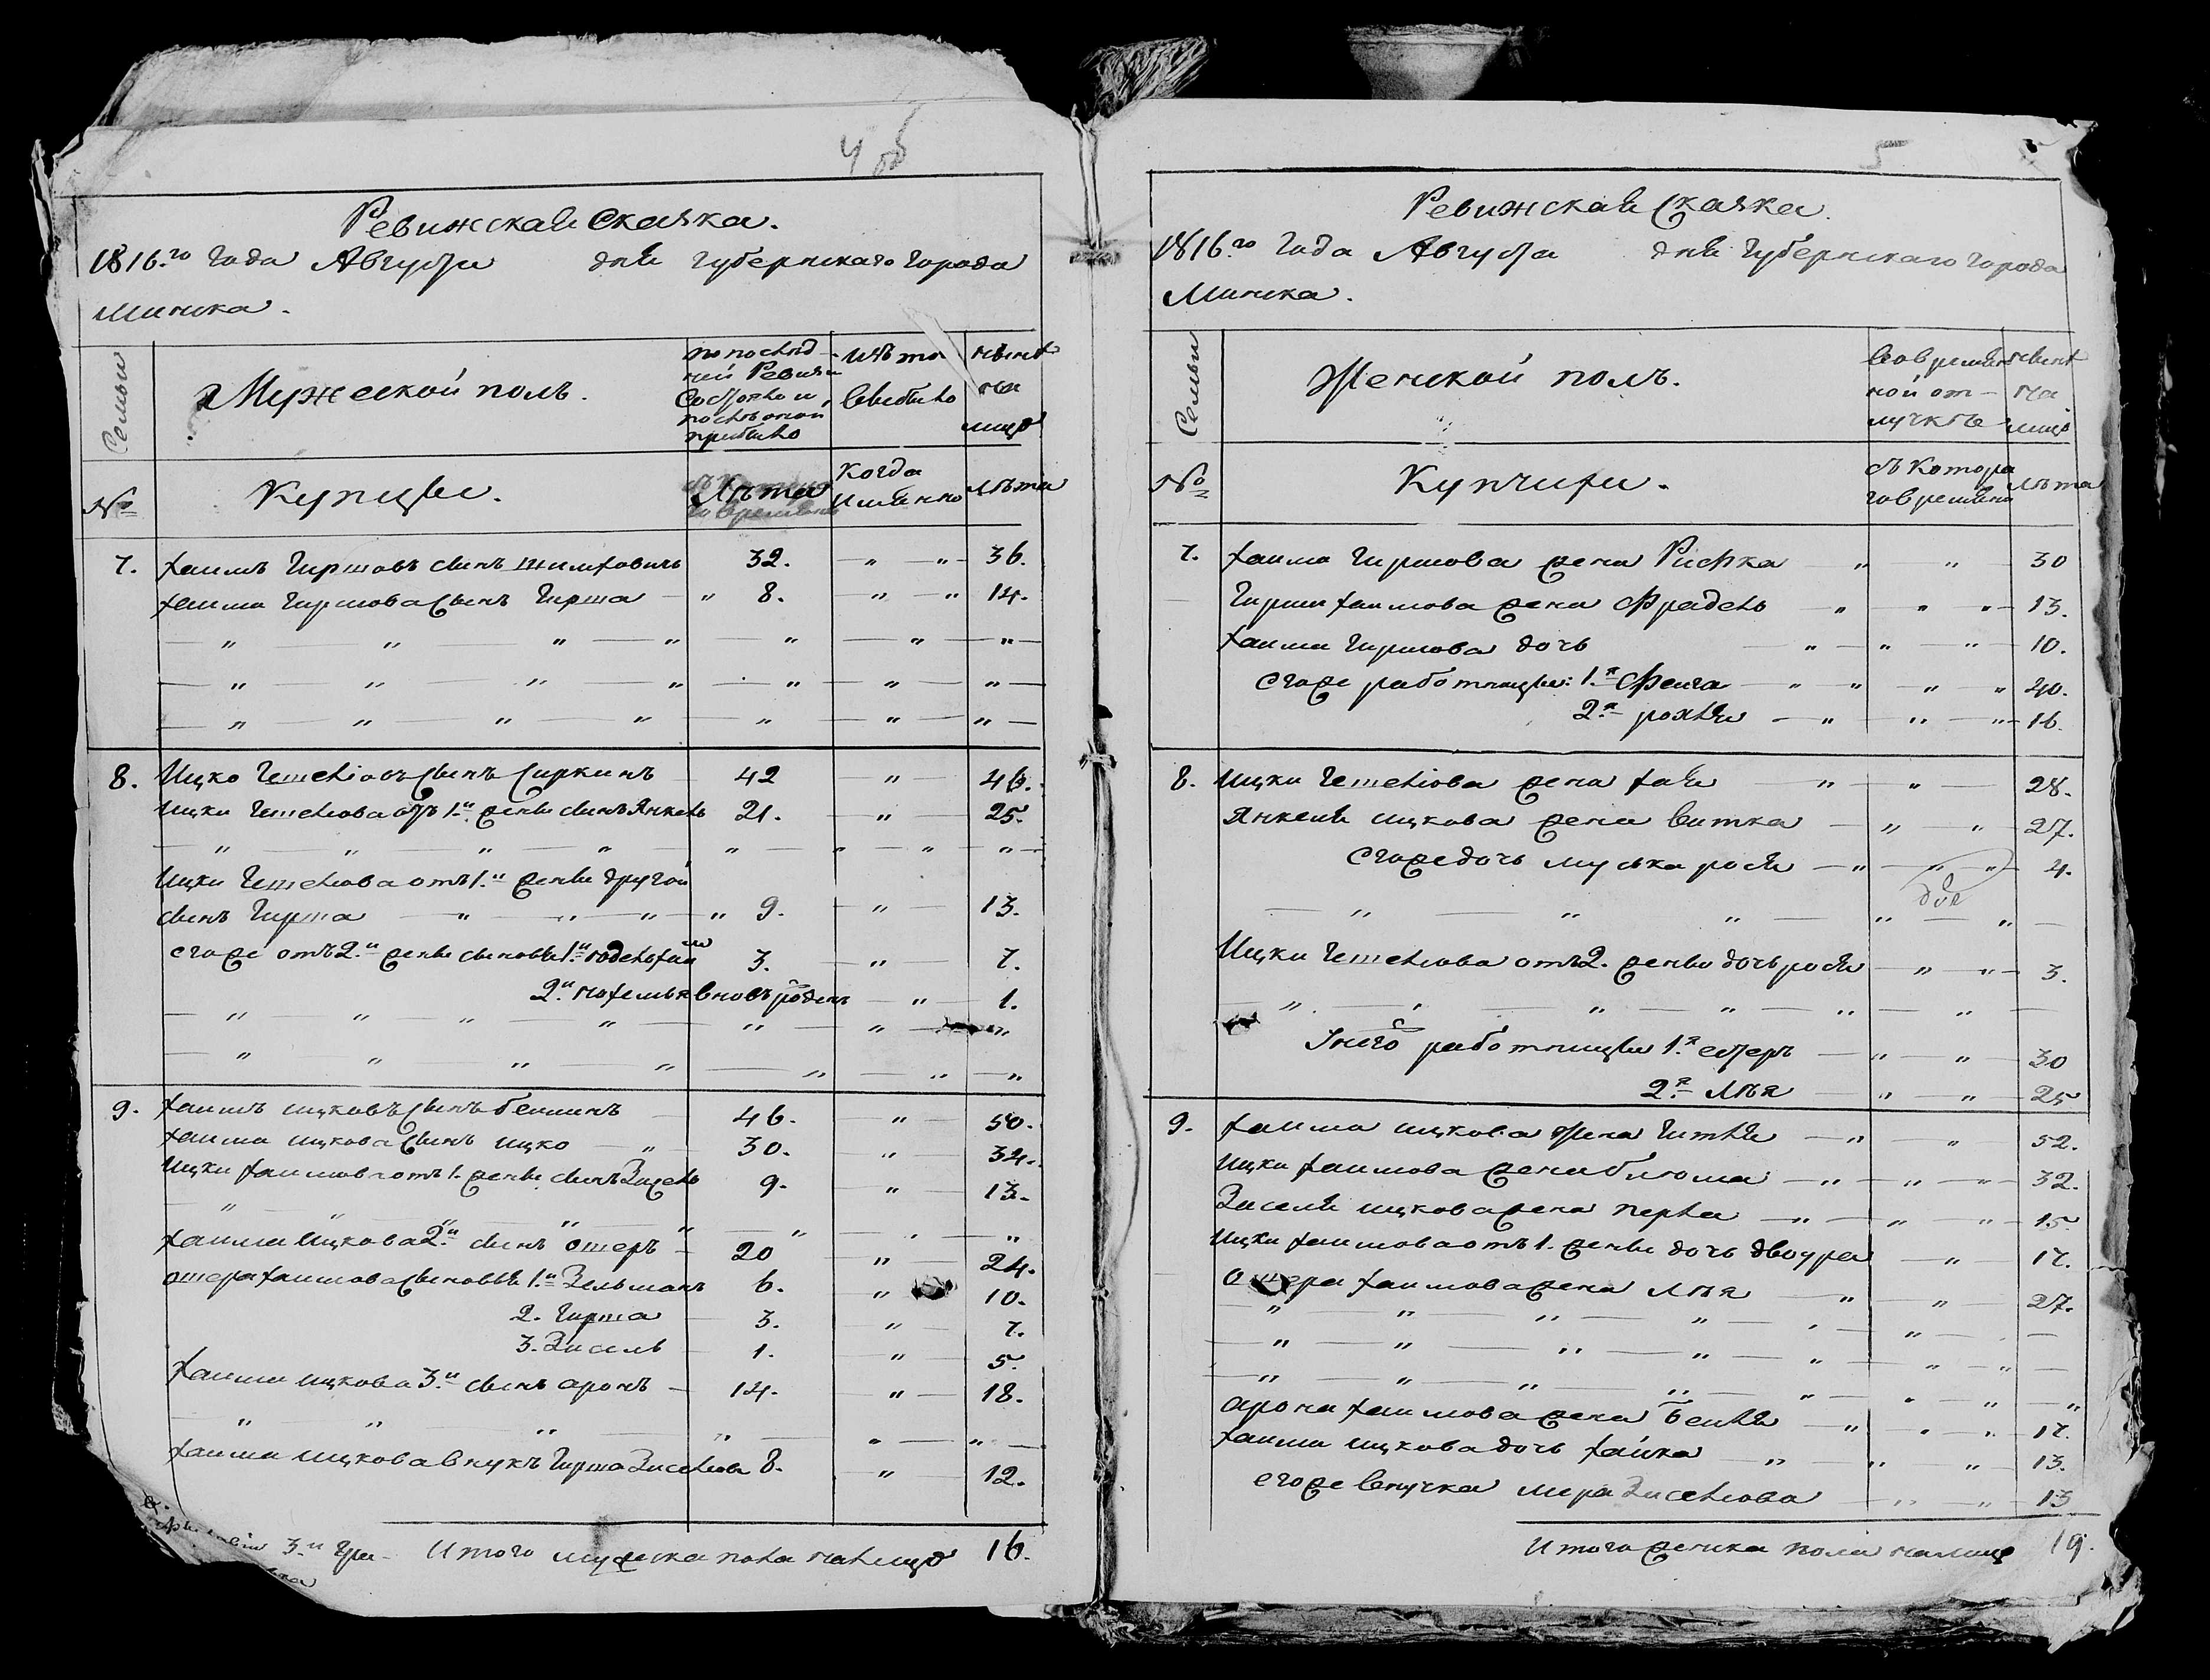 4 об
Ревижская Скаска.
1816.го Года Августа дня губернскаго города
Минска.
Семьи
Мужеской полъ.
по послед-
ней Ревизи
Состояло и
после оной
прибыло
изъ того
выбыло
ныне
на
лицо
№
Купцы.
Лета
Когда
именно
Лета
7. Хаимъ Гиршовъ сынъ 32. " " 36.
Хаима Гиршова Сынъ Гирша " 8. " " 14.
" " " " " " "
" " " " " " "
" " " " " " "
8. Ицко Гешелiовъ Сынъ Сиркинъ 42 " 46.
Ицки Гешелiова отъ 1.й жены сынъ Янкель 21. " 25.
" " " " " " " "
Ицки Гешелiова отъ 1.й жены другой
сынъ Гирша " " " " 9. " 13.
егоже отъ 2.й жены сыновья 1.й 3. " 7.
2.й вновь рожденъ " 1.
" " " " " " "
" " " " " " "
9. Хаимъ ицковъ Сынъ 46. " 50.
Хаима ицкова Сынъ ицко " 30. " 34.
Ицки Хаимова отъ 1. жены сынъ Зисель 9. " 13.
" " " " " " " "
Хаима Ицкова 2.й сынъ ошеръ 20 " 24.
ошера Хаимова Сыновья 1.й Зельманъ 6. " 10.
2. Гирша 3. " 7.
3. Зисель 1. " 5.
Хаима ицкова 3.й сынъ аронъ 14. " 18.
" " " " " "
Хаима ицкова внукъ Гирша Зиселiовъ 8. " 12.
3.й Гра-
Итого мужеска пола налицо 16.
5
Ревижская Скаска.
1816.го Года Августа дня Губернскаго города
Минска.
Семьи
Женской полъ.
Во времен
ной от-
лучке
ныне
на
лицо
№
Купчихи.
съ Котора
го времени
лета
7. Хаима Гиршова жена Рисшка " " 30
Гирши Хаимова жена Фрадель " " " 13.
Хаима Гиршова дочь " " " 10.
егоже работницы: 1.я Феига " " " " 40.
2.я рохля " " " 16.
8. Ицки Гешелiова жена Хая " " 28.
Янкеля ицкова жена Витка " " 27.
егоже дочь муська рося " " " 4.
две
" " " " "
Ицки Гешелiова отъ 2. жены дочь рося " " 3.
" " " " " "
У него работницы 1.я естеръ " " 30
2.я Лея " " 25
9. Хаима ицкова жена Гитля " " 52.
Ицки Хаимова жена блюма " " " 32.
Зиселя ицкова жена перла " " " 15
Ицки Хаимова отъ 1. жены дочь двоура " 17.
Ошера Хаимова жена Лея " " 27.
" " " " " "
" " " " " " "
" " " " " " " "
арона Хаимова жена беиля " " " 17.
Хаима ицкова дочь Хайка " " " 13.
егоже внучка мера Зиселiова " " 13
Итого женска пола налицо 19.